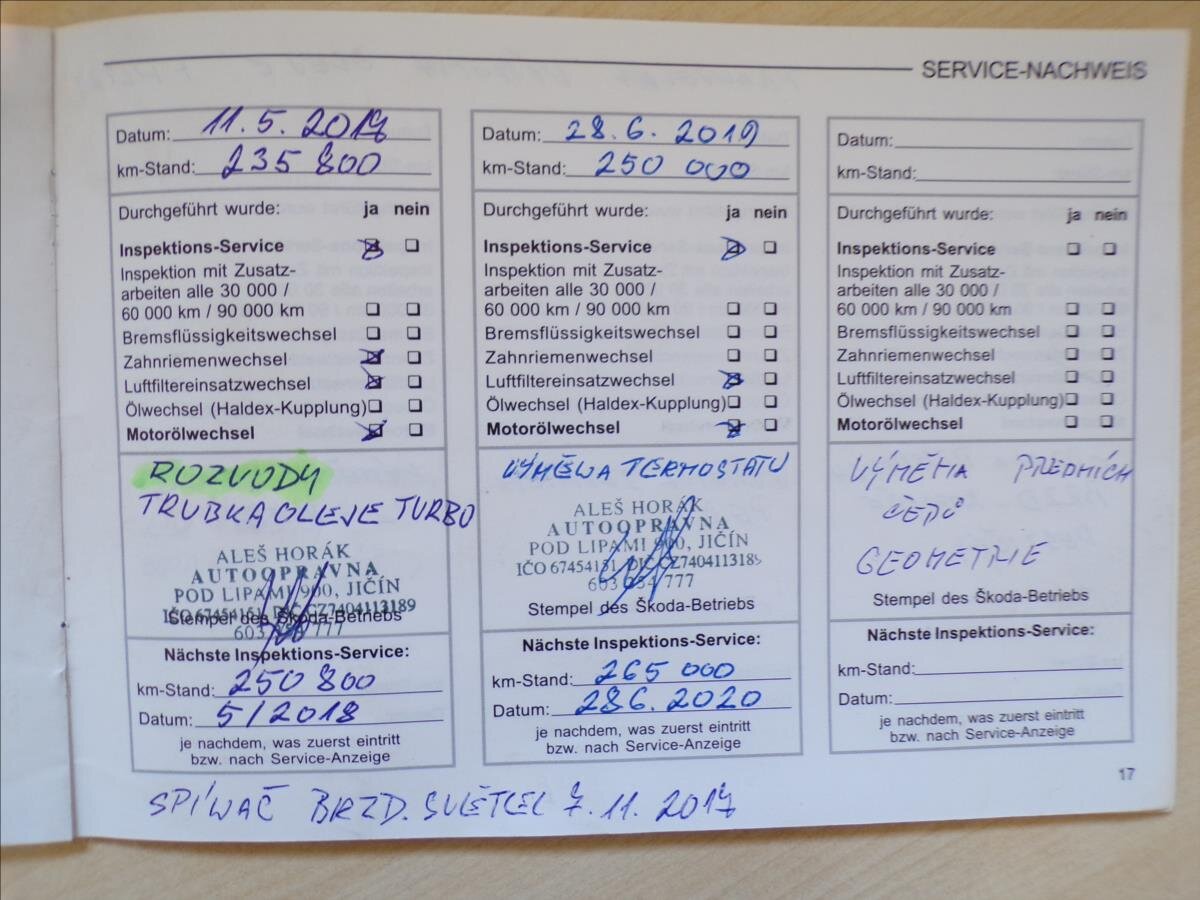 SERVICE-NACHWEIS
Datum: 11.5.2017
km-Stand: 235 800
Durchgeführt wurde: ja nein
Inspektions-Service
Inspektion mit Zusatz-
arbeiten alle 30 000 /
60 000 km / 90 000 km
Bremsflüssigkeitswechsel
Zahnriemenwechsel
Luftfiltereinsatzwechsel
Ölwechsel (Haldex-Kupplung)
Motorölwechsel
ROZVODY
TRUBKA OLEJE TURBO
ALEŠ HORÁK
AUTOOPRAVNA
POD LIPAMI 900, JIČÍN
IČO 67454151, DIČ CZ7404113189
Stempel des Škoda-Betriebs
603 777
Nächste Inspektions-Service:
km-Stand: 250 800
Datum: 5/2018
je nachdem, was zuerst eintritt
bzw. nach Service-Anzeige
Datum: 28.6.2019
km-Stand: 250 000
Durchgeführt wurde: ja nein
Inspektions-Service
Inspektion mit Zusatz-
arbeiten alle 30 000 /
60 000 km / 90 000 km
Bremsflüssigkeitswechsel
Zahnriemenwechsel
Luftfiltereinsatzwechsel
Ölwechsel (Haldex-Kupplung)
Motorölwechsel
VÝMĚNA TERMOSTATU
ALEŠ HORÁK
AUTOOPRAVNA
POD LIPAMI 900, JIČÍN
IČO 67454151, DIČ CZ7404113189
603 777
Stempel des Škoda-Betriebs
Nächste Inspektions-Service:
km-Stand: 265 000
Datum: 28.6.2020
je nachdem, was zuerst eintritt
bzw. nach Service-Anzeige
Datum:
km-Stand:
Durchgeführt wurde: ja nein
Inspektions-Service
Inspektion mit Zusatz-
arbeiten alle 30 000 /
60 000 km / 90 000 km
Bremsflüssigkeitswechsel
Zahnriemenwechsel
Luftfiltereinsatzwechsel
Ölwechsel (Haldex-Kupplung)
Motorölwechsel
VÝMĚNA PŘEDNÍCH
ČEPŮ
GEOMETRIE
Stempel des Škoda-Betriebs
Nächste Inspektions-Service:
km-Stand:
Datum:
je nachdem, was zuerst eintritt
bzw. nach Service-Anzeige
17
SPÍNAČ BRZD. SVĚTEL 7.11.2017